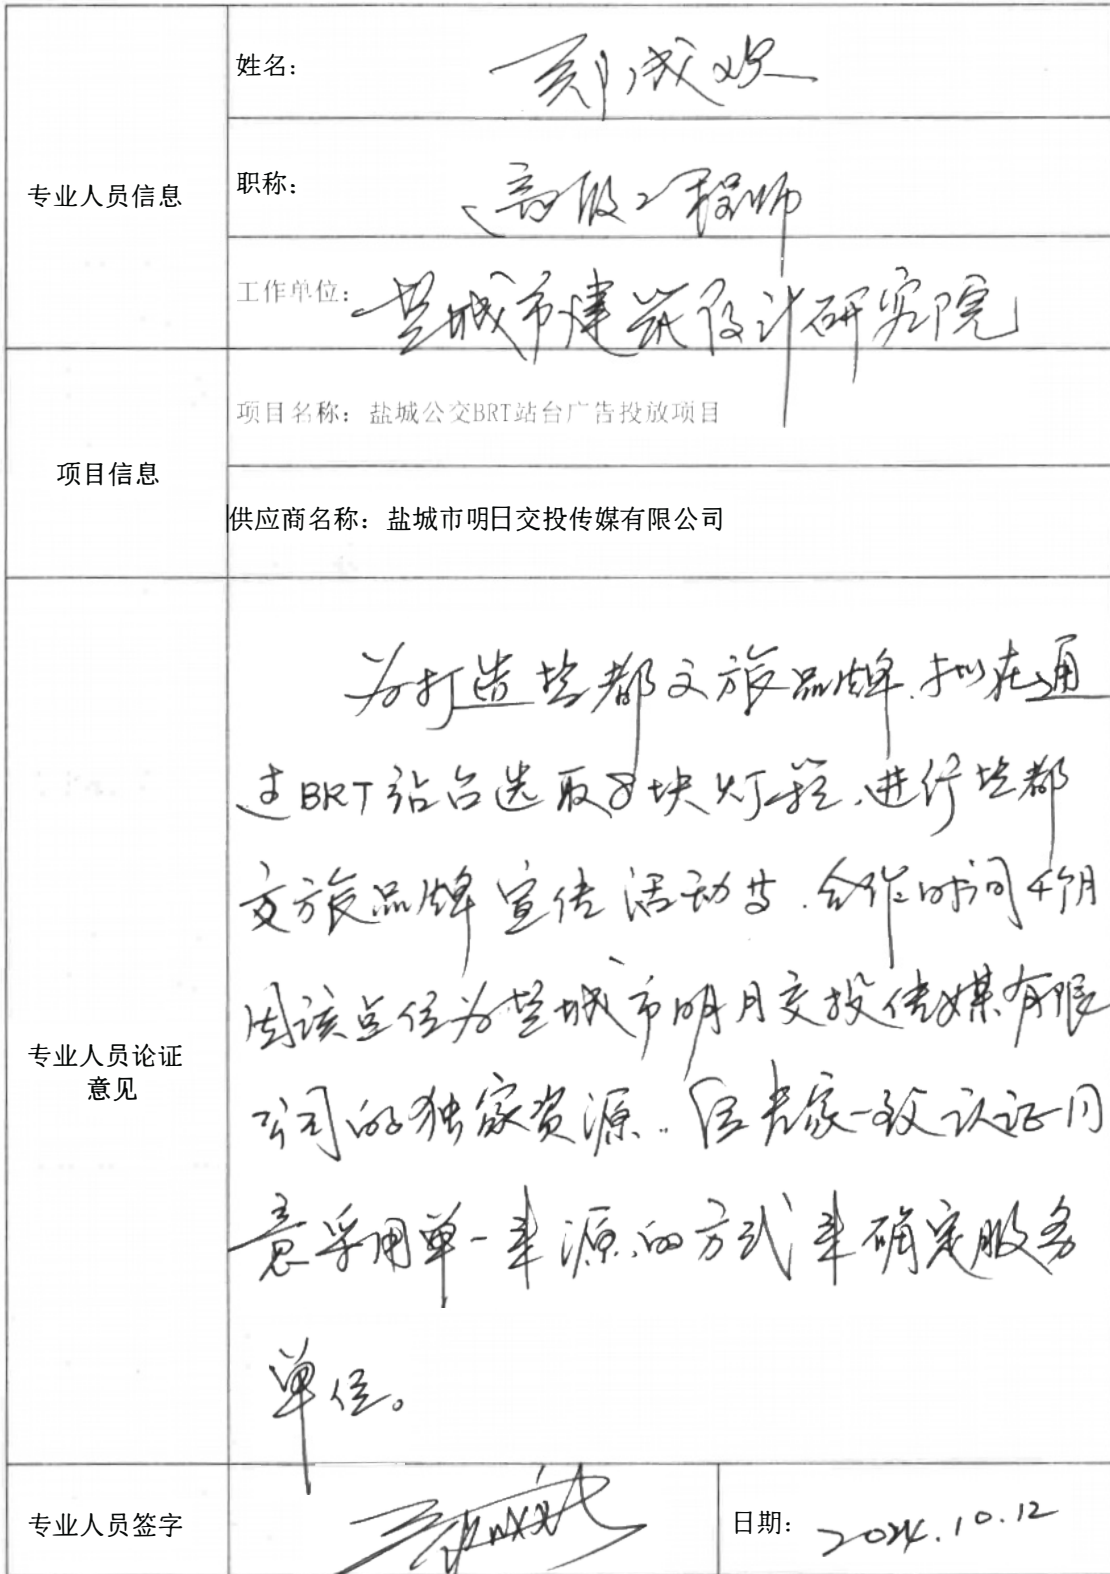 专业人员信息
姓名：
成欢
职称：
高级工程师
工作单位：盐城市建筑设计研究院
项目信息
项目名称：盐城公交BRT站台广告投放项目
供应商名称：盐城市明日交投传媒有限公司
专业人员论证
意见
为打造盐都文旅品牌.拟在通
过BRT站台选取8块灯箱.进行盐都
文旅品牌宣传活动等.合作时间4个月
因该点位为盐城市明月交投传媒有限
公司的独家资源..经专家一致认证同
意采用单一来源的方式来确定服务
单位。
专业人员签字
日期：2024.10.12